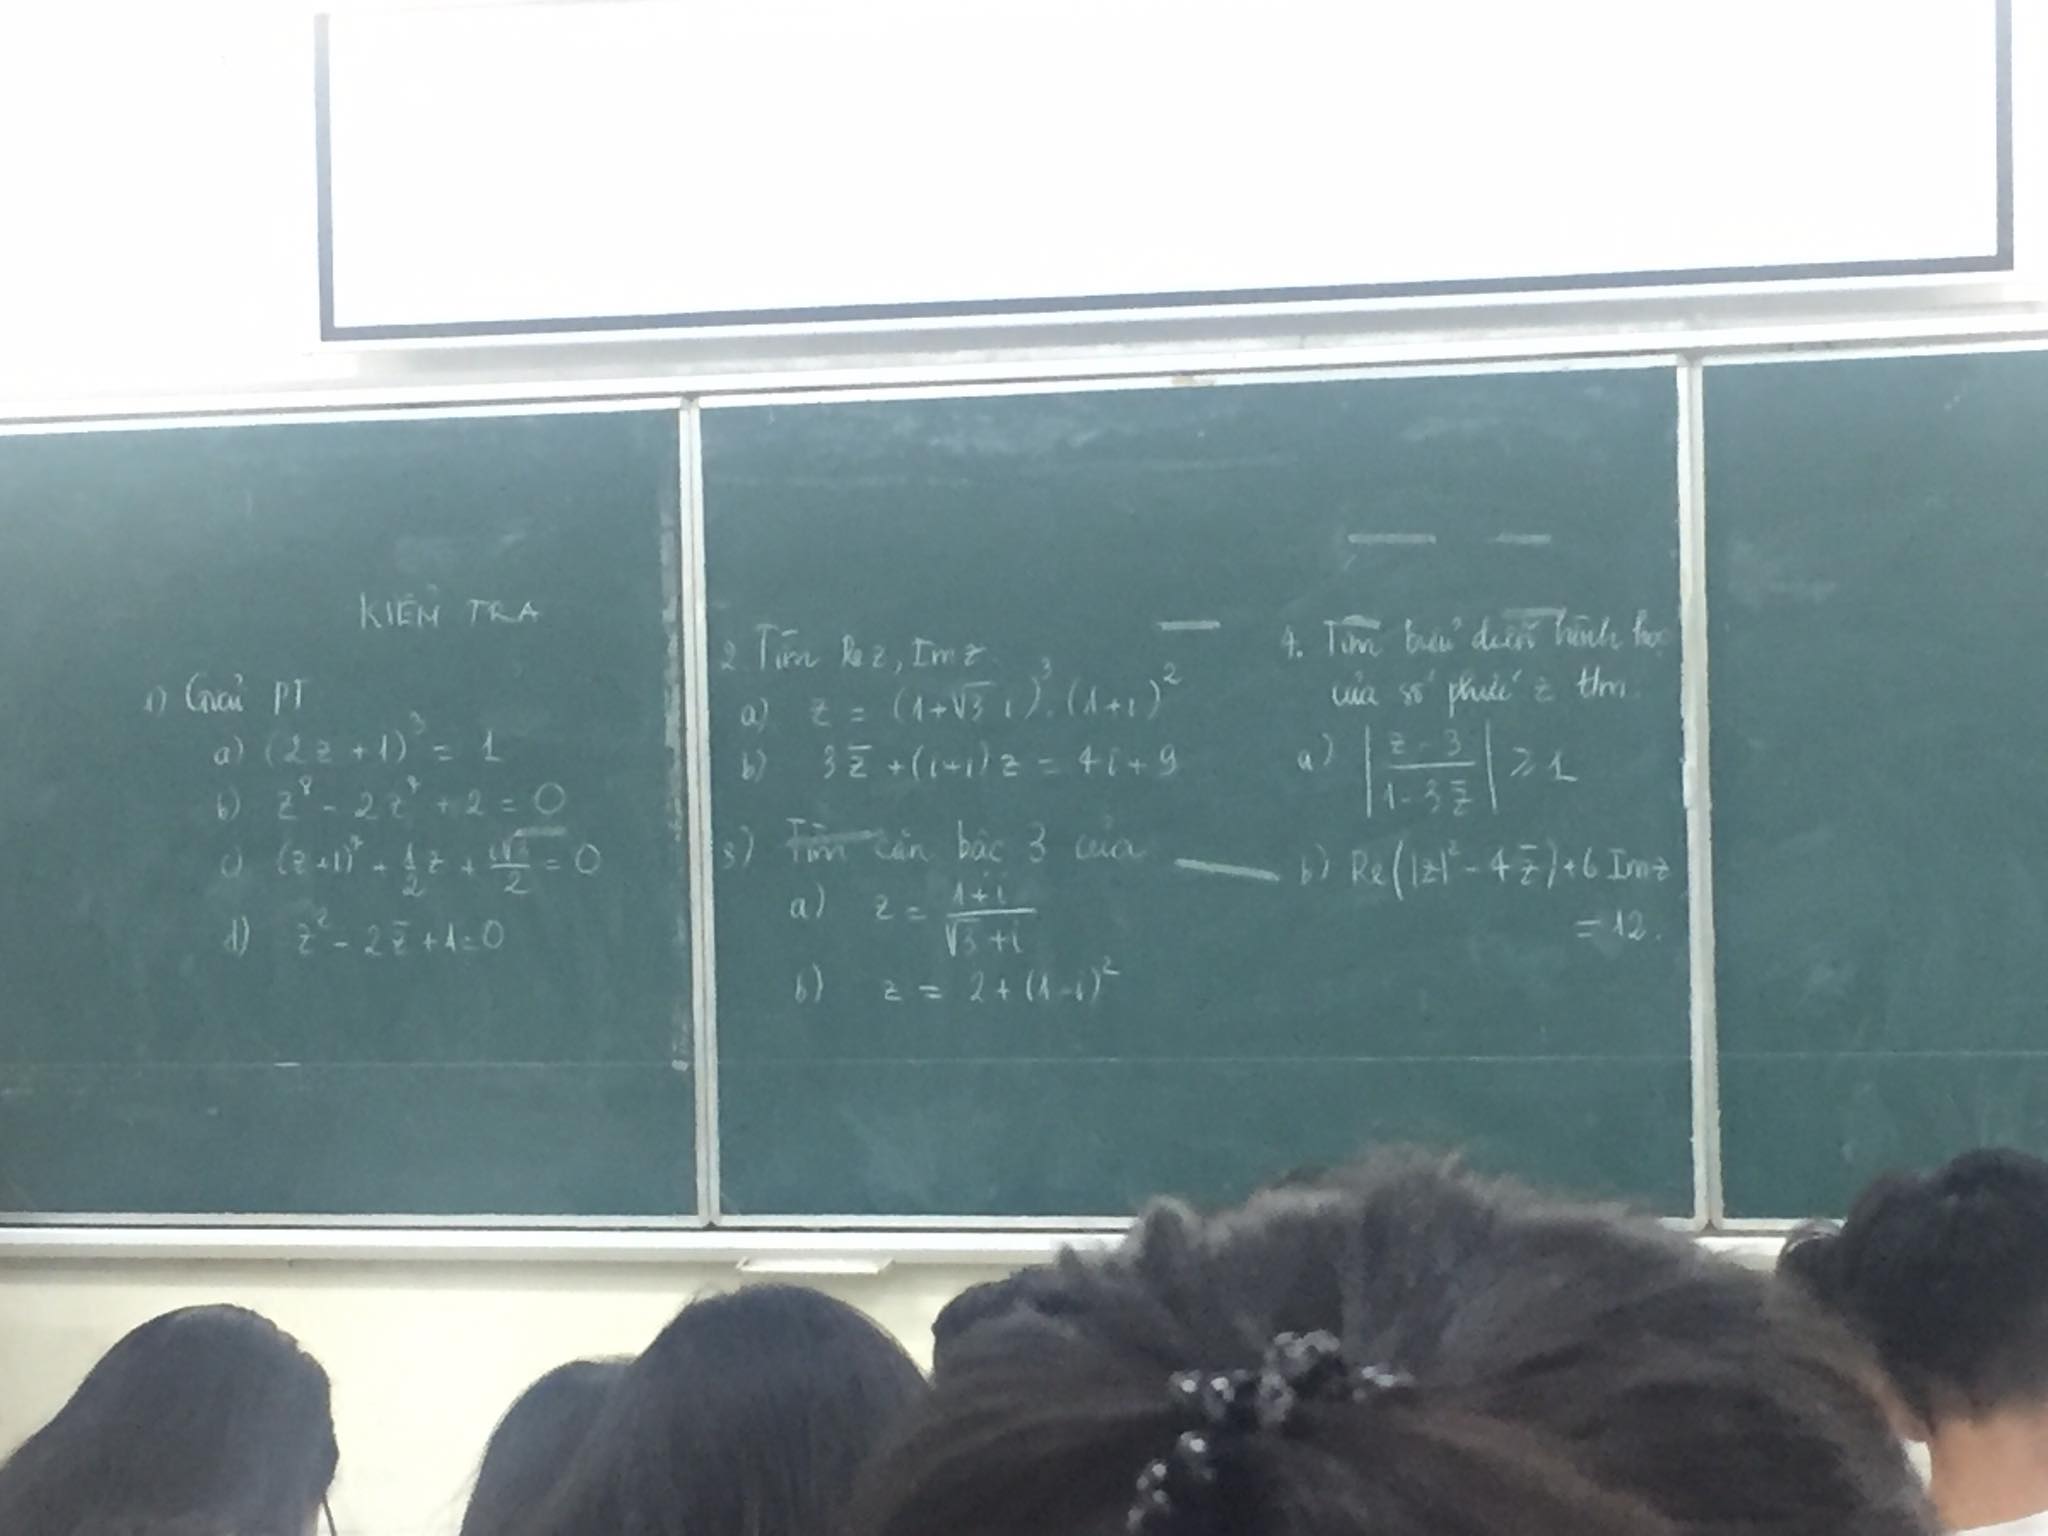 KIỂM TRA
1) Giải PT
a) (2z + 1)³ = 1
b) z⁸ - 2z⁴ + 2 = 0
c) (z+1)² + 1/2 z + i√3/2 = 0
d) z² - 2z̅ + 1 = 0
2. Tìm Re z, Im z
a) z = (1+√3 i)³ . (1+i)²
b) 3z̅ + (1+i) z = 4i + 9
3) Tìm căn bậc 3 của
a) z = (1+i)/(√3 + i)
b) z = 2 + (1-i)²
4. Tìm biểu diễn hình học
của số phức z tm.
a) |(z - 3)/(1 - 3z̅)| ⩾ 1
b) Re(|z|² - 4z̅) + 6 Im z
= 12.